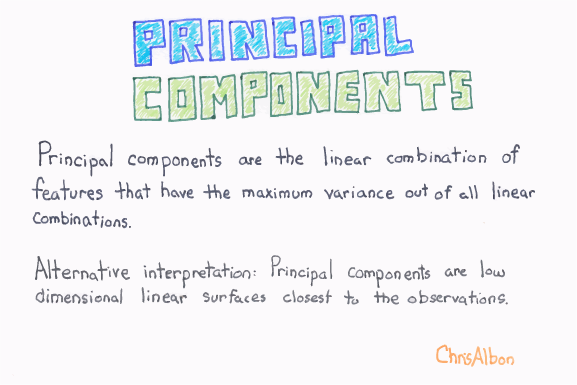 PRINCIPAL
COMPONENTS
Principal components are the linear combination of
features that have the maximum variance out of all linear
combinations.
Alternative interpretation: Principal components are low
dimensional linear surfaces closest to the observations.
ChrisAlbon